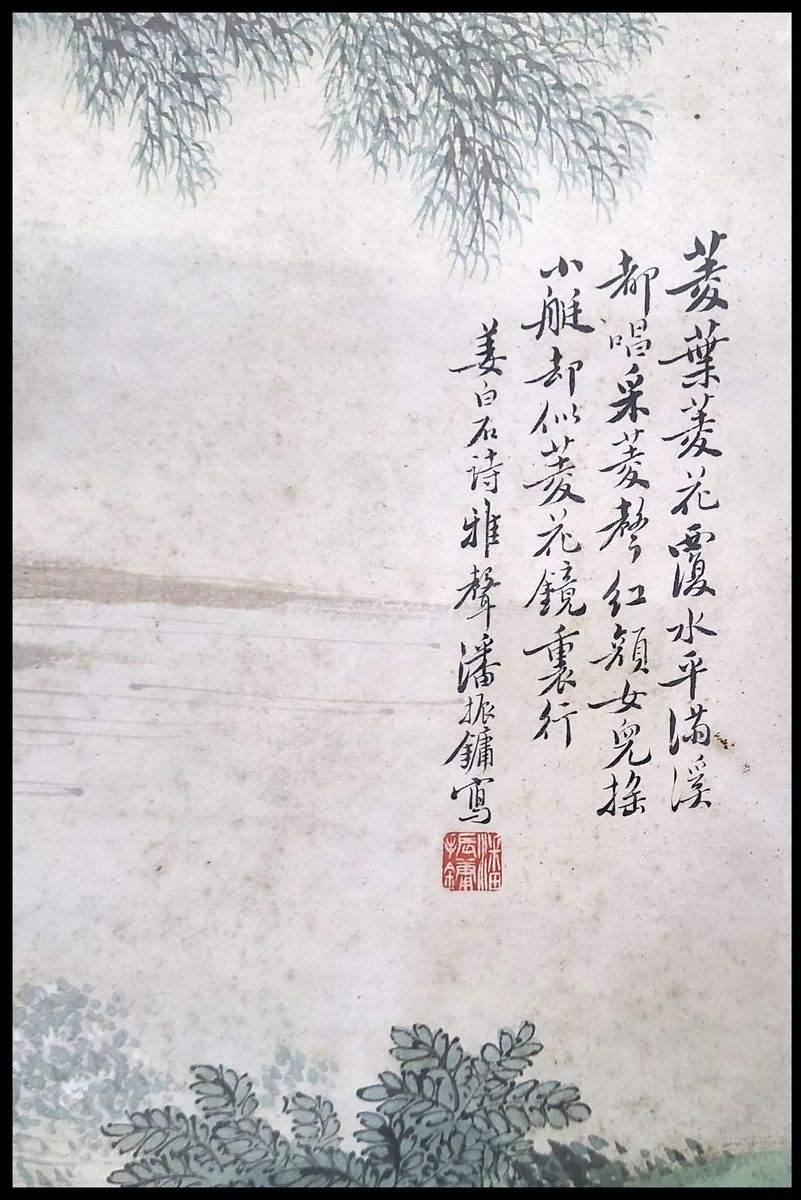 菱葉菱花覆水平滿溪
都唱采菱聲紅顔女兒搖
小艇却似菱花鏡裏行
姜白石詩雅聲潘振鏞寫
潘振鏞